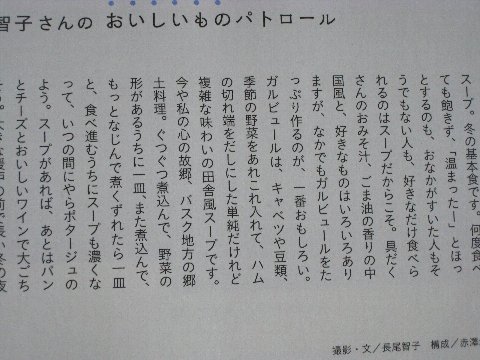 智子さんの おいしいものパトロール
スープ。冬の基本食です。何度食べ
ても飽きず、「温まったー」とほっ
とするのも、おなかがすいた人もそ
うでもない人も、好きなだけ食べら
れるのはスープだからこそ。具だく
さんのおみそ汁、ごま油の香りの中
国風と、好きなものはいろいろあり
ますが、なかでもガルビュールをた
っぷり作るのが、一番おもしろい。
ガルビュールは、キャベツや豆類、
季節の野菜をあれこれ入れて、ハム
の切れ端をだしにした単純だけれど
複雑な味わいの田舎風スープです。
今や私の心の故郷、バスク地方の郷
土料理。ぐつぐつ煮込んで、野菜の
形があるうちに一皿、また煮込んで、
もっとなじんで煮くずれたら一皿
と、食べ進むうちにスープも濃くな
って、いつの間にやらポタージュの
よう。スープがあれば、あとはパン
とチーズとおいしいワインで大ごち
の前で長い冬の夜
撮影・文／長尾智子 構成／赤澤